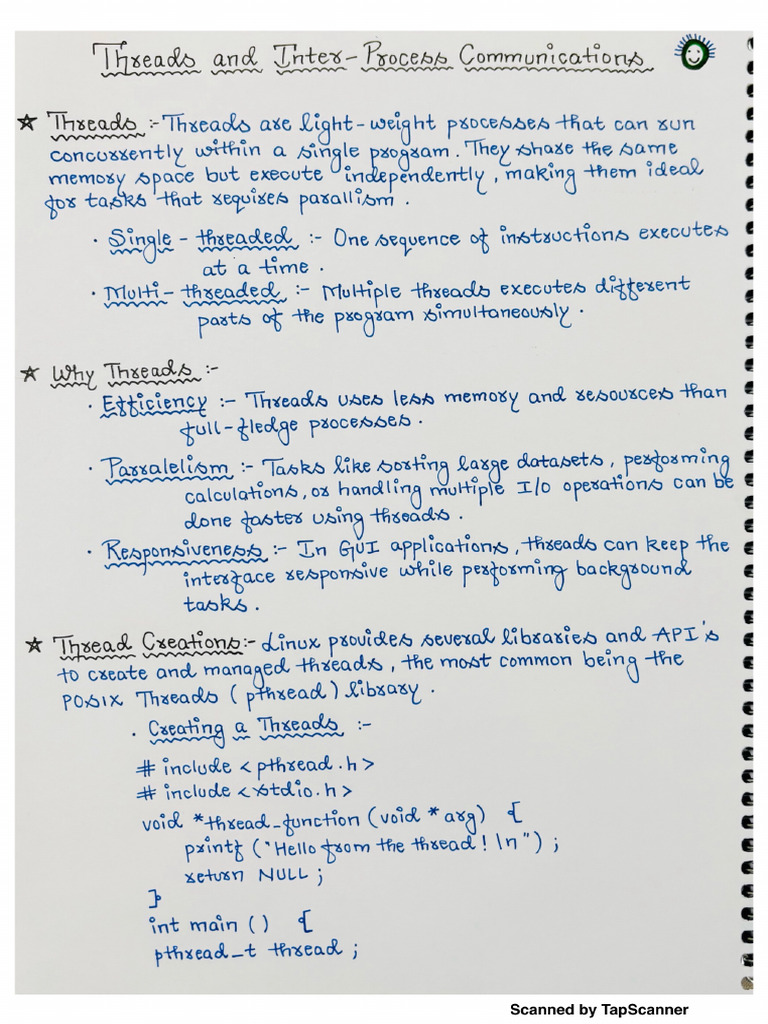 Threads and Inter-Process Communications
☆ Threads :- Threads are light-weight processes that can run
concurrently within a single program. They share the same
memory space but execute independently, making them ideal
for tasks that requires parallism.
· Single-threaded :- One sequence of instructions executes
at a time.
· Multi-threaded :- Multiple threads executes different
parts of the program simultaneously.
☆ Why Threads :-
· Efficiency :- Threads uses less memory and resources than
full-fledge processes.
· Parralelism :- Tasks like sorting large datasets, performing
calculations, or handling multiple I/O operations can be
done faster using threads.
· Responsiveness :- In GUI applications, threads can keep the
interface responsive while performing background
tasks.
☆ Thread Creations:- Linux provides several libraries and API's
to create and managed threads, the most common being the
POSIX Threads (pthread) library.
· Creating a Threads :-
# include <pthread.h>
# include <stdio.h>
void *thread_function (void *arg) {
printf ("Hello from the thread! \n") ;
return NULL ;
}
int main () {
pthread_t thread ;
Scanned by TapScanner